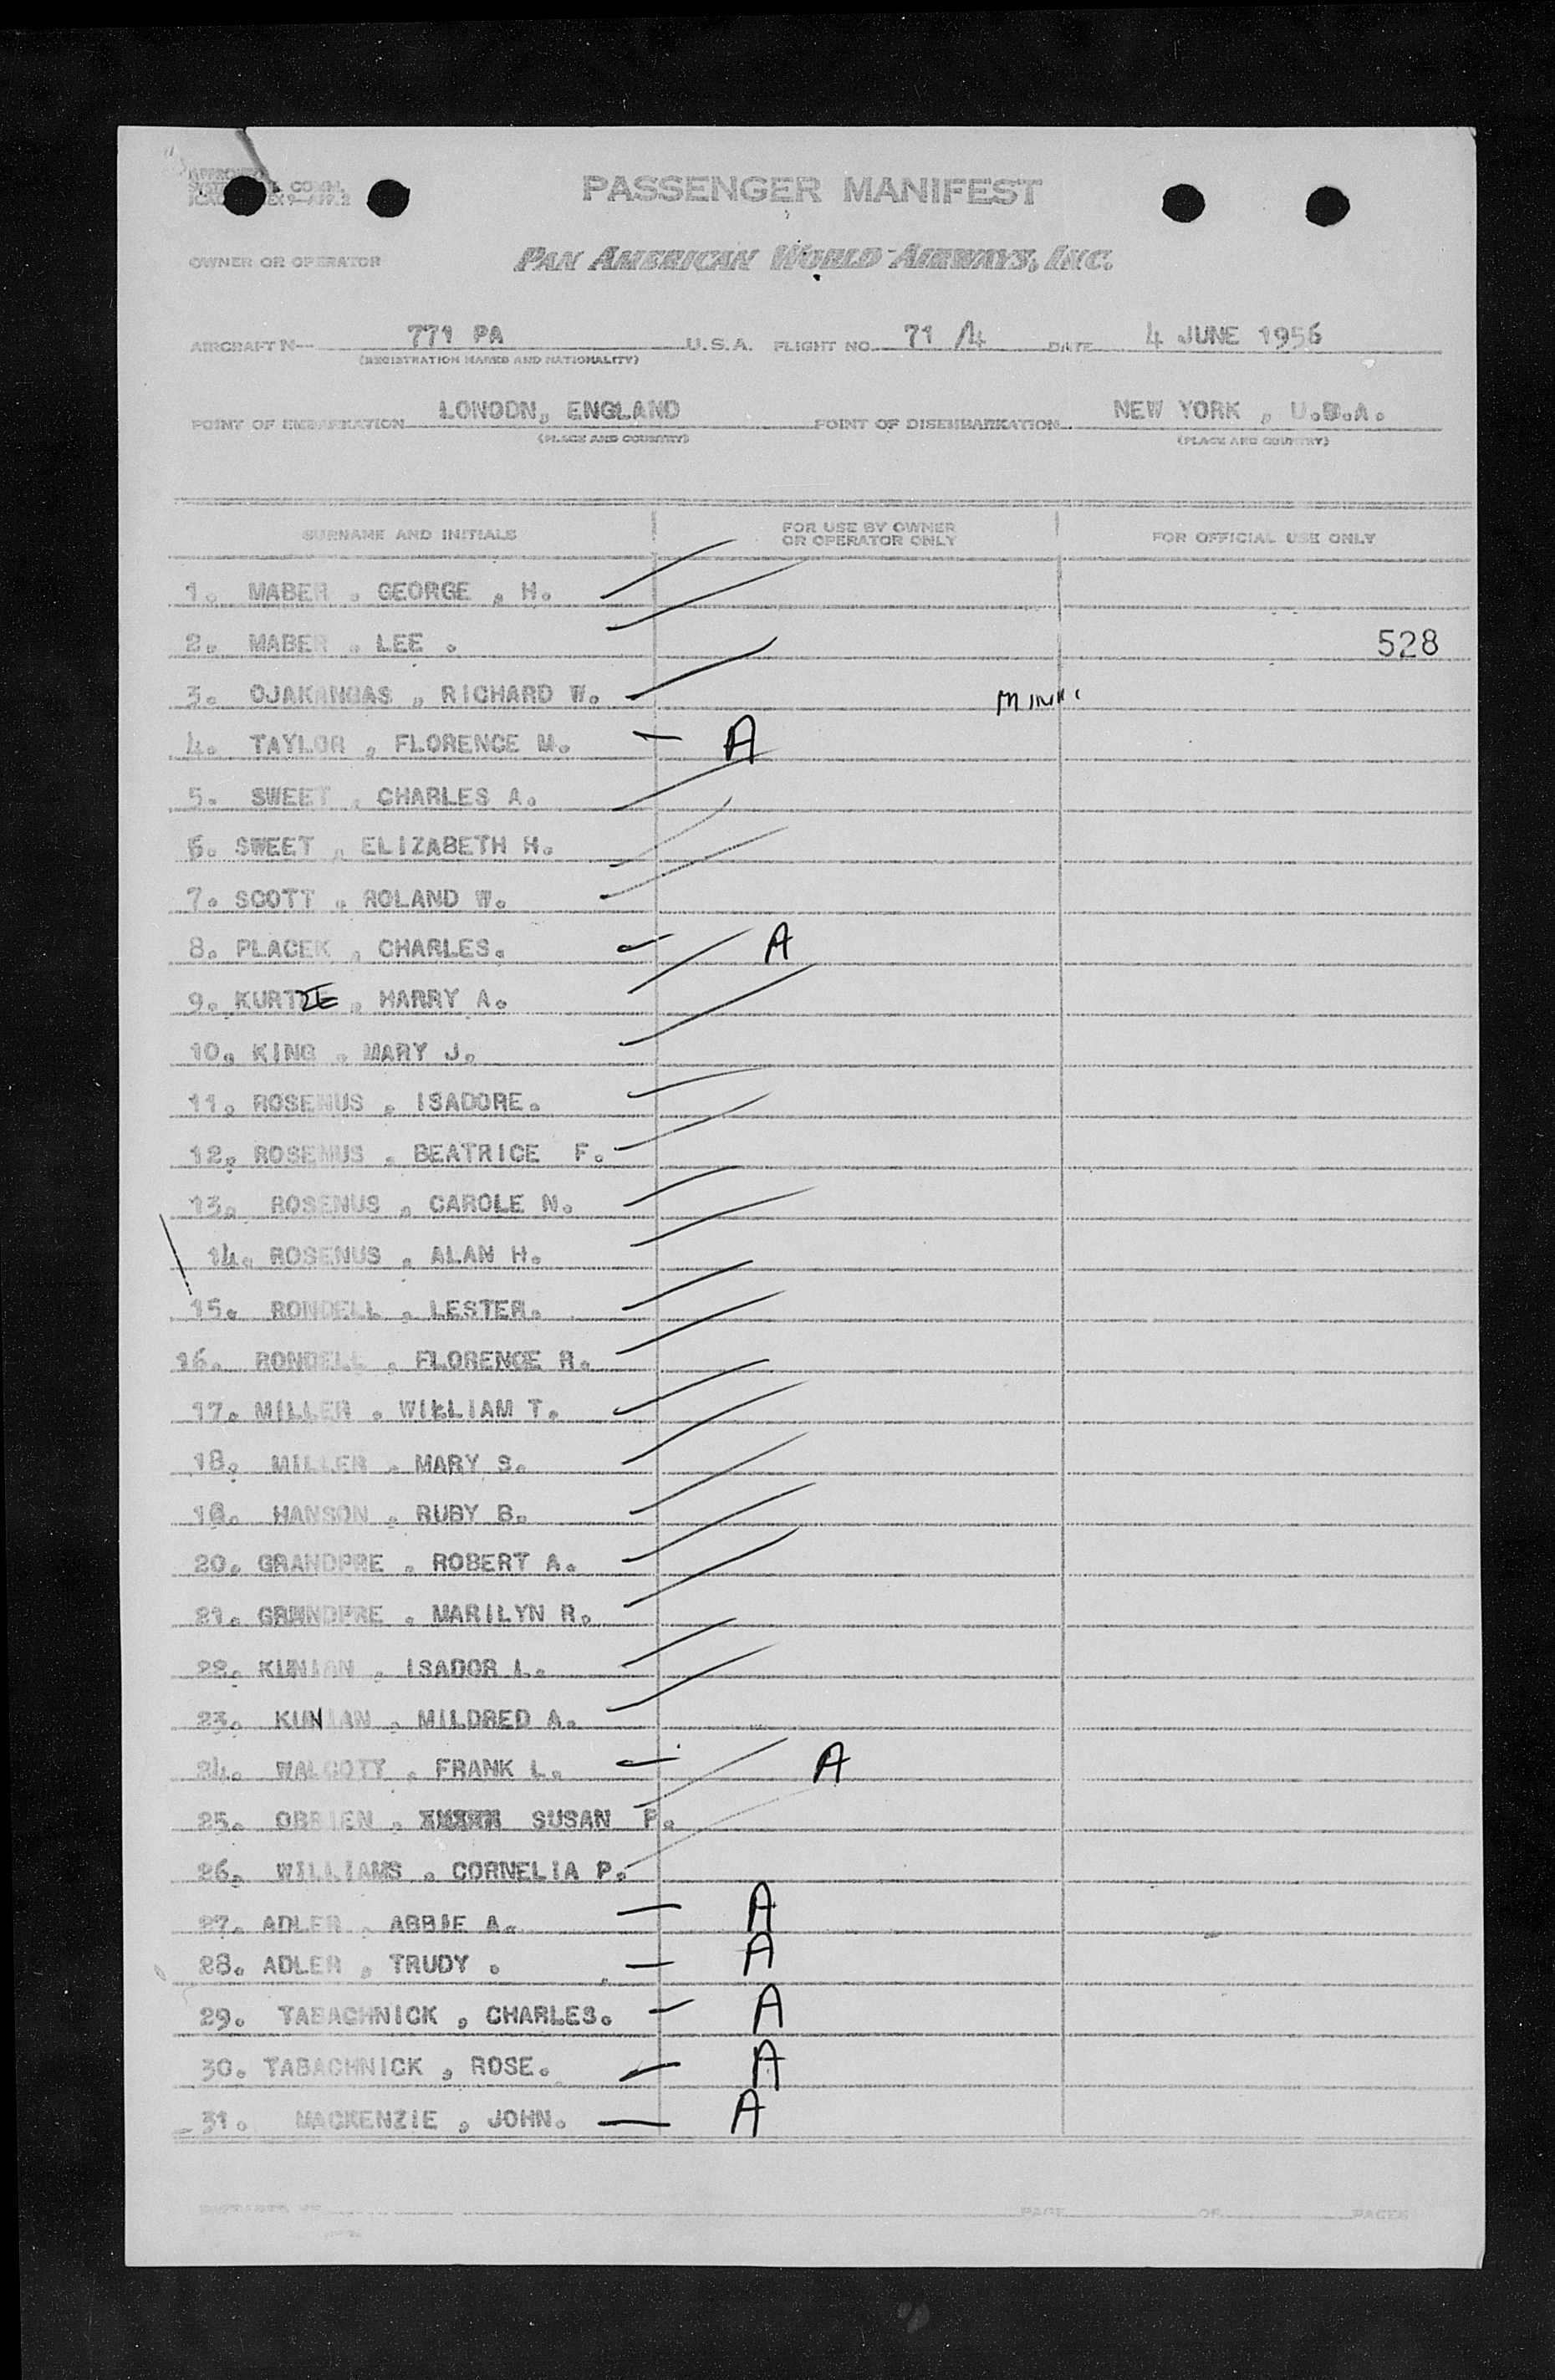 PASSENGER MANIFEST
OWNER OR OPERATOR PAN AMERICAN WORLD AIRWAYS, INC.
AIRCRAFT N— 771 PA U.S.A. FLIGHT NO. 71 /4 DATE 4 JUNE 1956
(REGISTRATION MARKS AND NATIONALITY)
POINT OF EMBARKATION LONODN, ENGLAND POINT OF DISEMBARKATION NEW YORK , U.S.A.
(PLACE AND COUNTRY) (PLACE AND COUNTRY)
SURNAME AND INITIALS FOR USE BY OWNER OR OPERATOR ONLY FOR OFFICIAL USE ONLY
1. MABER , GEORGE , H.
2. MABER , LEE . 528
3. OJAKANGAS , RICHARD W. MINN.
4. TAYLOR , FLORENCE M. — A
5. SWEET , CHARLES A.
6. SWEET , ELIZABETH H.
7. SCOTT , ROLAND W.
8. PLACEK , CHARLES. A
9. KURTZE , HARRY A.
10. KING , MARY J.
11. ROSENUS , ISADORE.
12. ROSENUS , BEATRICE F.
13. ROSENUS , CAROLE N.
14. ROSENUS , ALAN H.
15. RONDELL , LESTER.
16. RONDELL , FLORENCE R.
17. MILLER , WILLIAM T.
18. MILLER , MARY S.
19. HANSON , RUBY B.
20. GRANDPRE , ROBERT A.
21. GRANDPRE , MARILYN R.
22. KUNIAN , ISADOR L.
23. KUNIAN , MILDRED A.
24. WALCOTT , FRANK L. A
25. OBRIEN , SUSAN P.
26. WILLIAMS , CORNELIA P.
27. ADLER , ABBIE A. — A
28. ADLER , TRUDY . — A
29. TABACHNICK , CHARLES. — A
30. TABACHNICK , ROSE. — A
31. MACKENZIE , JOHN. — A
PAGE OF PAGES